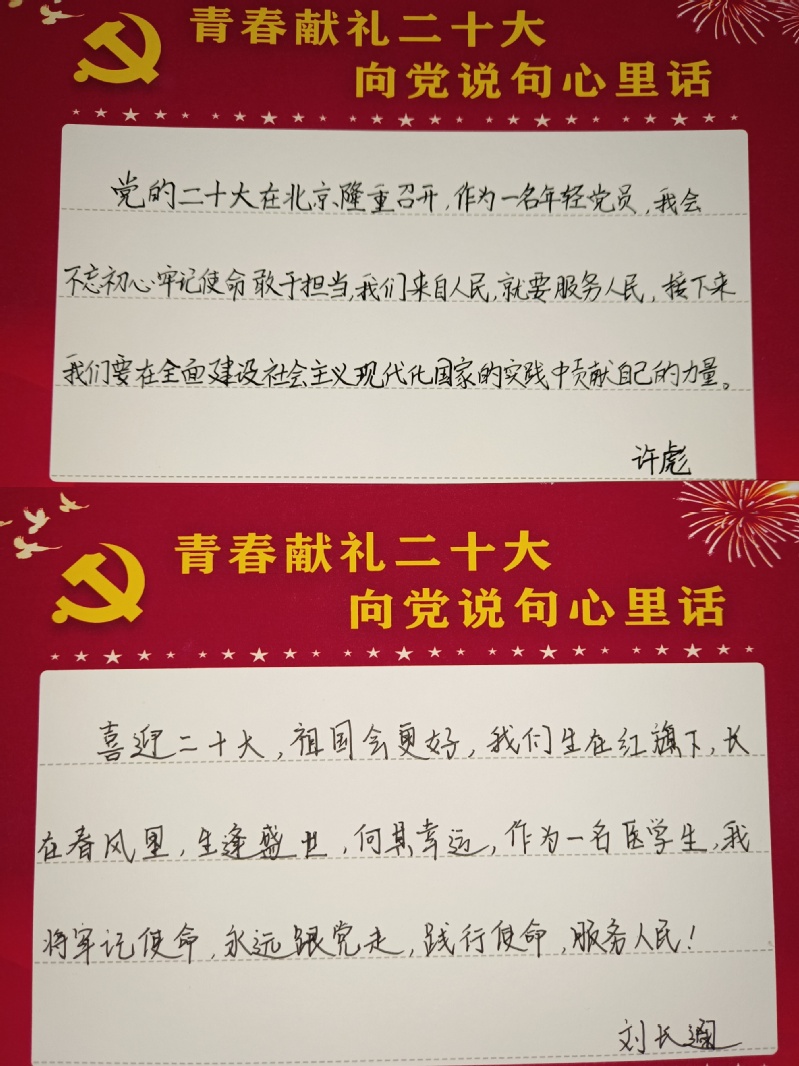 青春献礼二十大
向党说句心里话
党的二十大在北京隆重召开,作为一名年轻党员,我会
不忘初心牢记使命敢于担当,我们来自人民,就要服务人民,接下来
我们要在全面建设社会主义现代化国家的实践中贡献自己的力量。
许彪
青春献礼二十大
向党说句心里话
喜迎二十大,祖国会更好,我们生在红旗下,长
在春风里,生逢盛世,何其幸运,作为一名医学生,我
将牢记使命,永远跟党走,践行使命,服务人民!
刘长